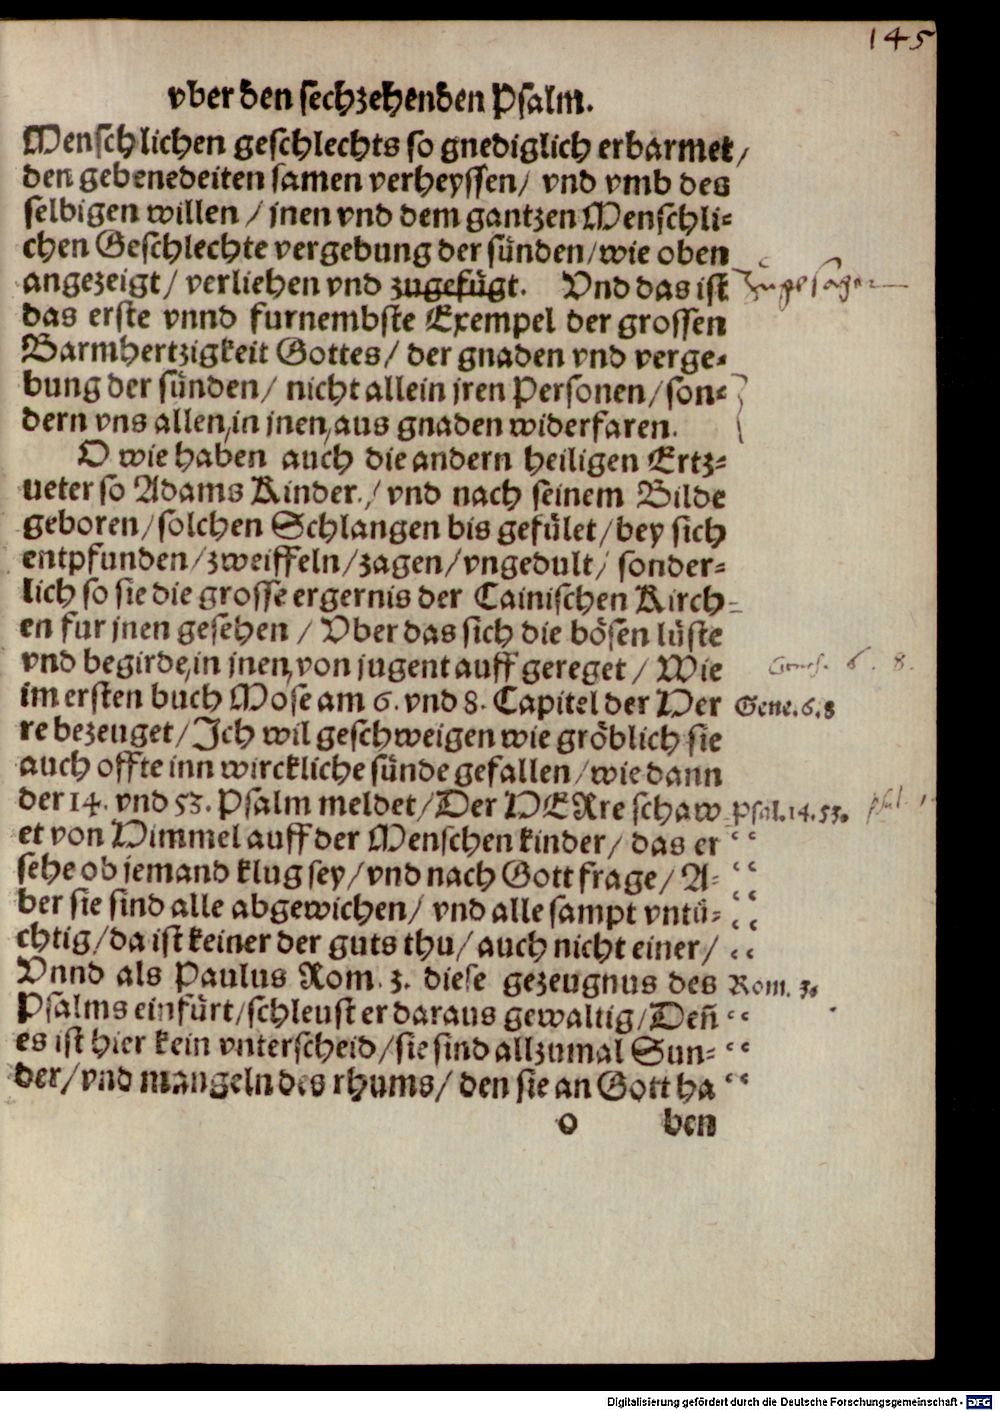 145
vber den sechzehenden Psalm.
Menschlichen geschlechts so gnediglich erbarmet/
den gebenedeiten samen verheyssen/ vnd vmb des
selbigen willen / jnen vnd dem gantzen Menschli=
chen Geschlechte vergebung der sünden/wie oben
angezeigt/ verliehen vnd zugefügt. Vnd das ist zugesagt
das erste vnnd furnembste Exempel der grossen
Barmhertzigkeit Gottes/ der gnaden vnd verge=
bung der sünden/ nicht allein jren Personen/son=
dern vns allen,in jnen,aus gnaden widerfaren.
O wie haben auch die andern heiligen Ertz=
ueter so Adams Kinder,/ vnd nach seinem Bilde
geboren/solchen Schlangen bis gefület/bey sich
entpfunden/zweiffeln/zagen/vngedult/ sonder=
lich so sie die grosse ergernis der Cainischen Kirch=
en fur jnen gesehen / Vber das sich die bösen lüste
vnd begirde,in jnen,von jugent auff gereget / Wie 6. 8.
im ersten buch Mose am 6. vnd 8. Capitel der Her Gene.6.8
re bezeuget/Ich wil geschweigen wie gröblich sie
auch offte inn wirckliche sünde gefallen/wie dann
der 14. vnd 53. Psalm meldet/Der HERre schaw Psal.14.53.
et von Himmel auff der Menschen kinder/ das er “
sehe ob jemand klug sey/vnd nach Gott frage/ A= “
ber sie sind alle abgewichen/ vnd alle sampt vntü= “
chtig/da ist keiner der guts thu/auch nicht einer/ “
Vnnd als Paulus Rom. 3. diese gezeugnus des Rom. 3.
Psalms einfürt/schleust er daraus gewaltig/Deñ “
es ist hier kein vnterscheid/sie sind allzumal Sun= “
der/vnd mangeln des rhums/ den sie an Gott ha “
o ben
Digitalisierung gefördert durch die Deutsche Forschungsgemeinschaft - DFG